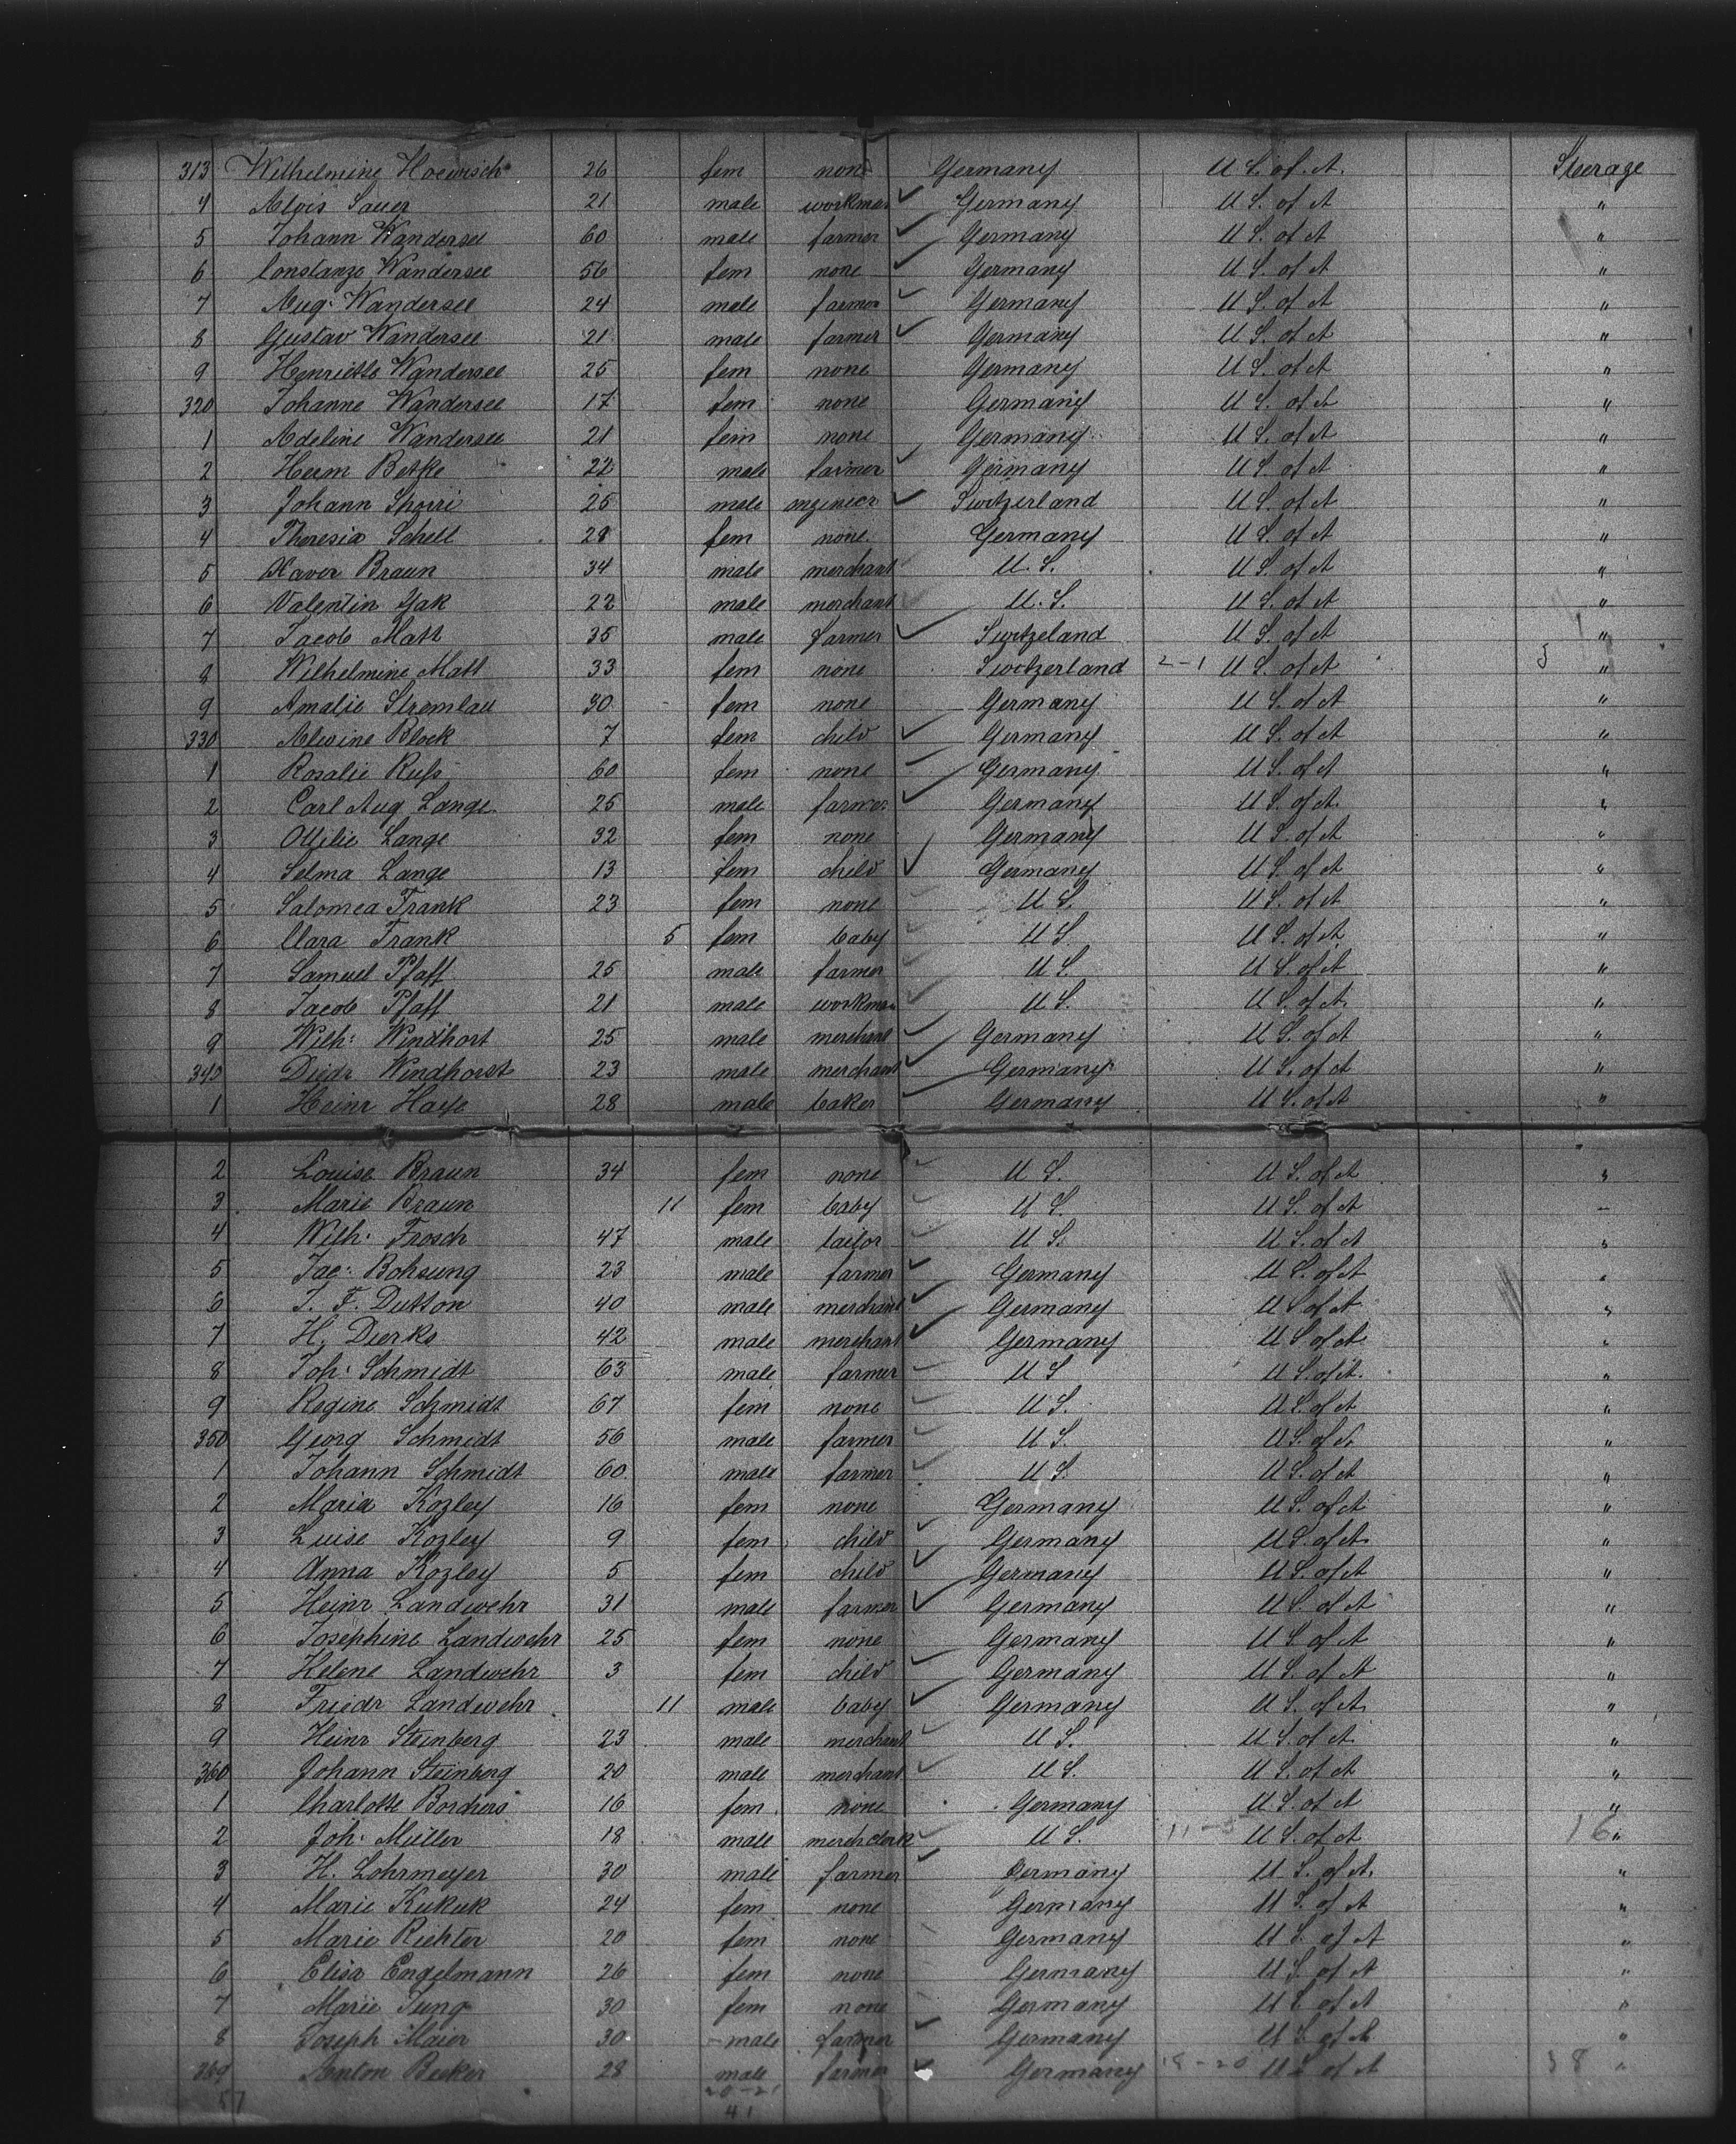 313 Wilhelmine Hoewisch 26 fem none Germany U S. of. A. Sterage
4 Alois Sauer 21 male workman Germany U S. of A "
5 Johann Wandersee 60 male farmer Germany U S. of A "
6 Constanze Wandersee 56 fem none Germany U S. of A "
7 Aug: Wandersee 24 male farmer Germany U S. of A "
8 Gustav Wandersee 21 male farmer Germany U S. of A "
9 Henriette Wandersee 25 fem none Germany U S. of A "
320 Johanne Wandersee 17 fem none Germany U S. of A "
1 Adeline Wandersee 21 fem none Germany U S. of A "
2 Herm Betke 22 male farmer Germany U S. of A "
3 Johann 25 male Switzerland U S. of A "
4 Theresia Schell 28 fem none Germany U S. of A "
5 Xaver Braun 34 male merchant U. S. U S. of A "
6 Valentin Yak 22 male merchant U. S. U S. of A "
7 Jacob Matt 35 male farmer Switzeland U S. of A "
8 Wilhelmine Matt 33 fem none Switzerland 2-1 U S. of A 5 "
9 Amalie Stremlau 30 fem none Germany U S. of A "
330 Alwine Block 7 fem child Germany U S. of A "
1 Rosalie Rufs 60 fem none Germany U S. of A "
2 Carl Aug Lange 25 male farmer Germany U S. of A "
3 Ottilie Lange 32 fem none Germany U S. of A "
4 Selma Lange 13 fem child Germany U S. of A "
5 Salomea Frank 23 fem none U S. U S. of A "
6 Clara Frank 5 fem baby U S. U S. of A "
7 Samuel Pfaff 25 male farmer U S. U S. of A "
8 Jacob Pfaff 21 male workman U S. U S. of A "
9 Wilh: Windhort 25 male merchant Germany U S. of A "
340 Diedr Windhorst 23 male merchant Germany U S. of A "
1 Heinr 28 male baker Germany U S. of A "
2 Louise Braun 34 fem none U S. U S. of A "
3 Marie Braun 11 fem baby U S. U S. of A "
4 Wilh: Frosch 47 male tailor U S. U S. of A "
5 Jac: Bohsung 23 male farmer Germany U S. of A "
6 J. F. Dutton 40 male merchant Germany U S of A "
7 H. Dierks 42 male merchant Germany U S of A "
8 Joh: Schmidt 63 male farmer U S U S. of A. "
9 Regine Schmidt 67 fem none U S. U S. of A "
350 Georg Schmidt 56 male farmer U S. U S. of A "
1 Johann Schmidt 60 male farmer U S. U S. of A "
2 Maria Kozley 16 fem none Germany U S. of A "
3 Luise Kozley 9 fem child Germany U S. of A "
4 Anna Kozley 5 fem child Germany U S. of A "
5 Heinr Landwehr 31 male farmer Germany U S. of A "
6 Josephine Landwehr 25 fem none Germany U S of A "
7 Helene Landwehr 3 fem child Germany U S. of A "
8 Friedr Landwehr 11 male baby Germany U S. of A "
9 Heinr Steinberg 23 male merchant U S. U S. of A "
360 Johann Steinberg 20 male merchant U S. U S. of A "
1 Charlotte Borchers 16 fem none Germany U. S. of A "
2 Joh: Müller 18 male merch clerk U S. 11-5 U S. of A 16 "
3 H. Lohrmeyer 30 male farmer Germany U. S. of A. "
4 Marie Kukuk 24 fem none Germany U S. of A "
5 Marie Richter 20 fem none Germany U S. of A "
6 Elisa Engelmann 26 fem none Germany U S. of A "
7 Marie Jung 30 fem none Germany U S. of A "
8 Joseph Maier 30 male farmer Germany U S. of A "
369 Anton Becker 28 male farmer Germany 18-20 U S of A 38 "
57 20-21
41